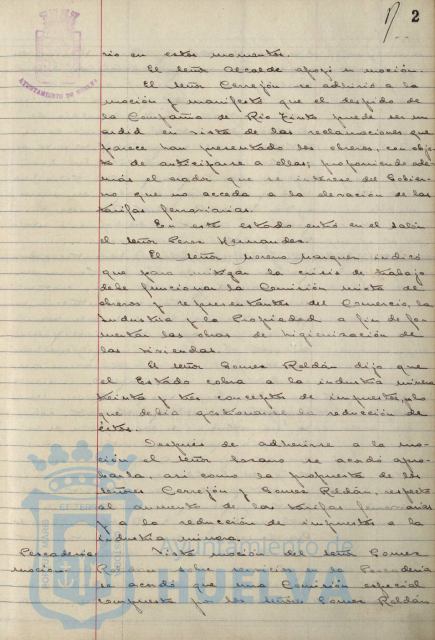 2
AYUNTAMIENTO DE HUELVA
rio en estos momentos.
El señor Alcalde apoyó su moción.
El señor Cerrejón se adhirió a la
moción y manifestó que el despido de
la Compañía de Rio Tinto puede ser un
ardid en vista de las reclamaciones que
parece han presentado los obreros, con obje
to de anticiparse a ellas; proponiendo ade-
más el orador que se interese del Gobier-
no que no acceda a la elevación de las
tarifas ferroviarias.
En este estado entró en el salón
el señor Perez Hernandez.
El señor Moreno Marquez indicó
que para mitigar la crisis de trabajo
debe funcionar la Comisión mixta de
obreros y representantes del Comercio, la
Industria y la Propiedad a fin de fo-
mentar las obras de higienización de
las viviendas.
El señor Gomez Roldán dijo que
el Estado cobra a la industria minera
treinta y tres conceptos de impuestos, por lo
que debía gestionarse la reducción de
éstos.
Después de adherirse a la mo-
ción el señor Lozano se acordó apro-
barla, así como la propuesta de los
señores Cerrejón y Gomez Roldán, respecto
al aumento de las tarifas ferroviarias
y a la reducción de impuestos a la
industria minera.
Pescadería Vista moción del señor Gomez
moción. Roldán sobre servicios en la Pescadería
se acordó que una Comisión especial
compuesta por los señores Gomez Roldán
Ayuntamiento de
HUELVA